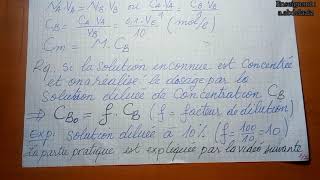 Enseignant :
n.abdelada
Na.Va = NB VB ou CB = CA.VA / VB
CB = CA VA / VB = 0,1.Ve / 10 (mol/l)
Cm = M. CB
Rq. Si la solution inconnue est concentrée
et on a réalisé le dosage par la
solution diluée de concentration CB
⇒ CB0 = f. CB (f = facteur de dilution)
Exp: solution diluée à 10% (f = 100/10 = 10)
La partie pratique est expliquée par la vidéo suivante